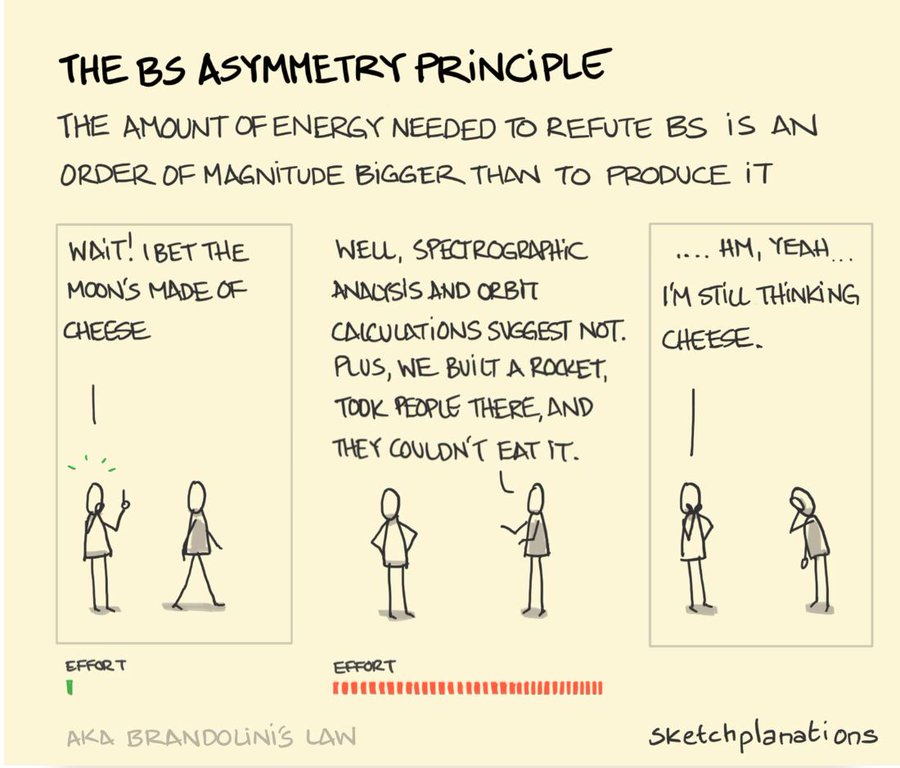 THE BS ASYMMETRY PRINCIPLE
THE AMOUNT OF ENERGY NEEDED TO REFUTE BS IS AN
ORDER OF MAGNITUDE BIGGER THAN TO PRODUCE IT
WAIT! I BET THE
MOON'S MADE OF
CHEESE
WELL, SPECTROGRAPHIC
ANALYSIS AND ORBIT
CALCULATIONS SUGGEST NOT.
PLUS, WE BUILT A ROCKET,
TOOK PEOPLE THERE, AND
THEY COULDN'T EAT IT.
.... HM, YEAH...
I'M STILL THINKING
CHEESE.
EFFORT
EFFORT
AKA BRANDOLINI'S LAW
sketchplanations